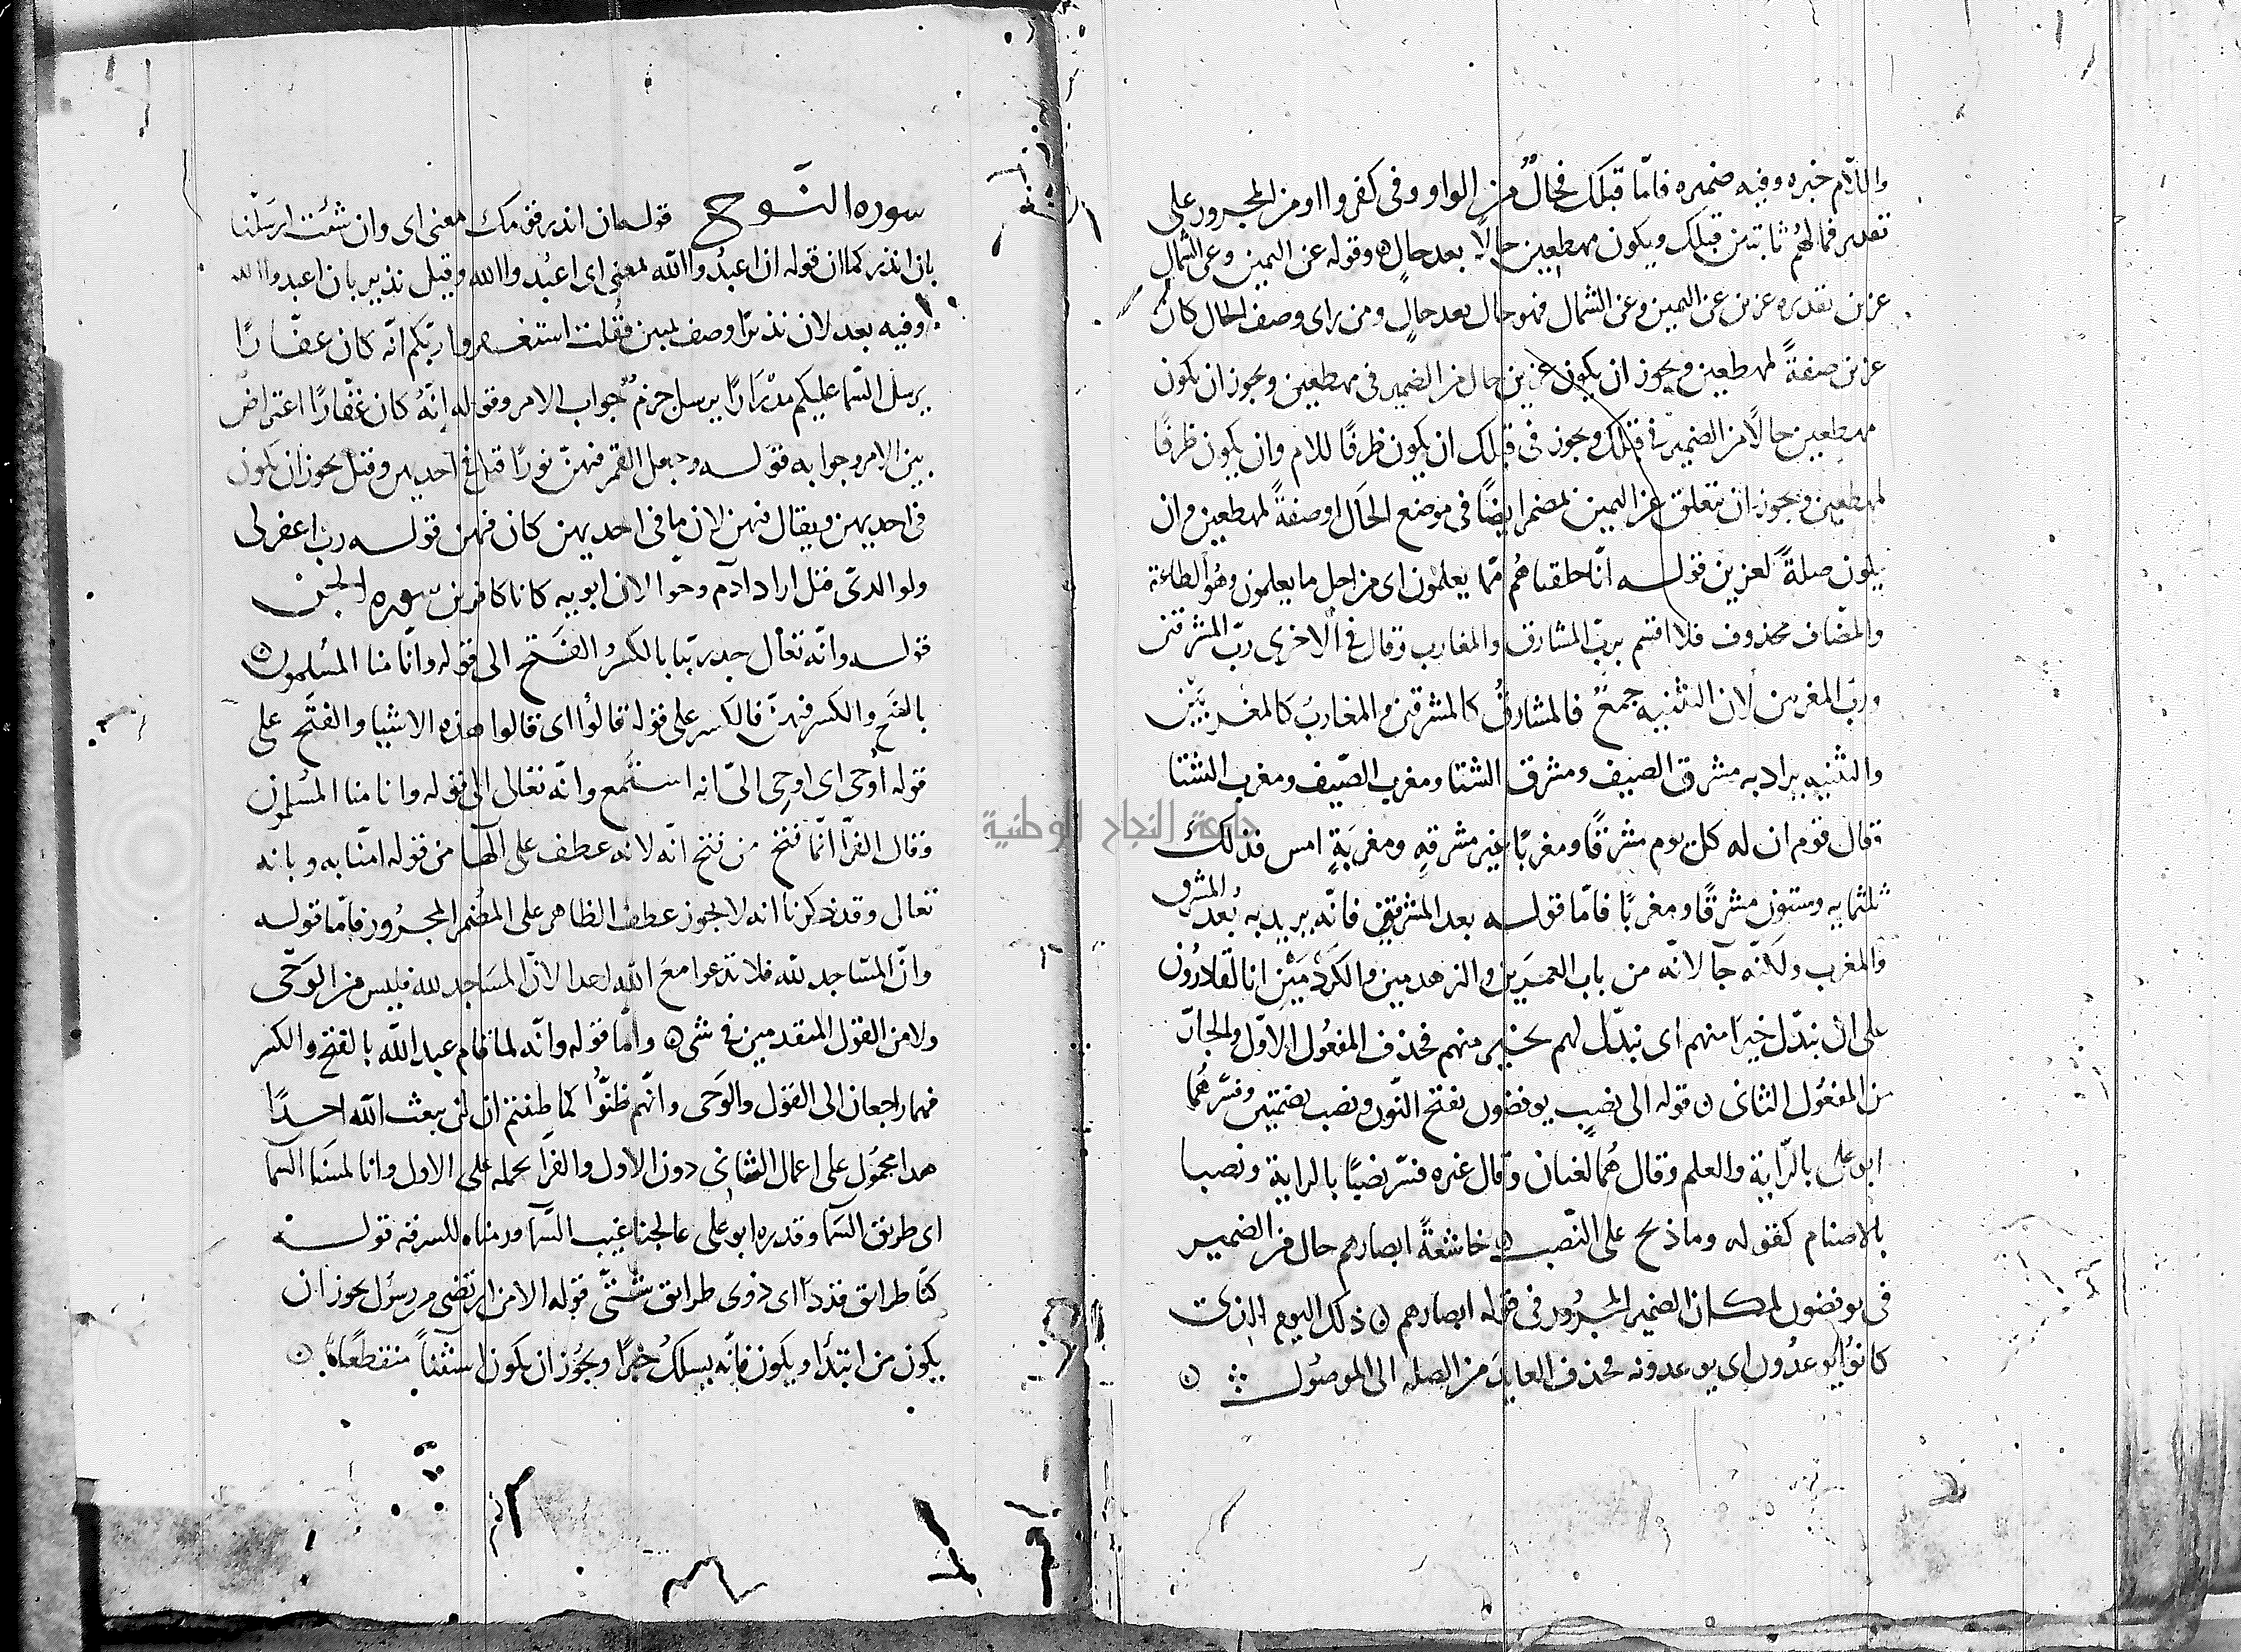 واللام خبره وفيه ضميره فاما قبلك فحالٌ من الواو وفى كفروا او من المجرور على
تقدير فما لهم ثابتين قبلك ويكون مهطعين حالا بعد حالٍ وقوله عن اليمين وعن الشمال
عزين تقديره عزين عن اليمين وعن الشمال فهو حال بعد حالٍ ومن راى وصف الحال كان
عزين صفةً لمهطعين ويجوز ان يكون عزين حال من الضمير فى مهطعين ويجوز ان يكون
مهطعين حالًا من الضمير فى قبلك ويجوز فى قبلك ان يكون ظرفًا للام وان يكون ظرفًا
لمهطعين ويجوز ان يتعلق عن اليمين بمضمر ايضًا فى موضع الحال او صفةً لمهطعين وان
يكون صلةً لعزين قوله انا خلقناهم مما يعلمون اى من اجل ما يعلمون وهو الطاعة
والمضاف محذوف فلا اقسم برب المشارق والمغارب وقال فى الاخرى رب المشرقين
ورب المغربين لان التثنيه جمعٌ فالمشارق كالمشرقين والمغارب كالمغربين
والتثنيه يراد به مشرق الصيف ومشرق الشتا ومغرب الصيف ومغرب الشتا
وقال قوم ان له كل يوم مشرقًا ومغربًا غير مشرقه ومغربةٍ امس فذلك
ثلثمايه وستون مشرقًا ومغربًا فاما قوله بعد المشرقين فانه يريد به بُعد المشرق
والمغرب ولكنه جا لانه من باب العمرين والزهدمين والكردمين انا لقادرون
على ان نبدّل خيرًا منهم اى نبدّل لهم بخير منهم فحذف المفعول الاوّل والجارّ
من المفعول الثانى ٥ قوله الى نصبٍ يوفضون بفتح النون ونصب بضمتين وفسرهما
ابو على بالراية والعلم وقال هما لغتان وقال غيره فسر نصبًا بالراية ونصبا
بالاصنام كقوله وما ذبح على النصب ٥ خاشعةً ابصارهم حال من الضمير
فى يوفضون لمكان الضمير المجرور فى قوله ابصارهم ٥ ذلك اليوم الذى
كانوا يوعدون اى يوعدونه فحذف العايد من الصله الى الموصول ٥
سوره النوح قوله ان انذر قومك معنى اى وان شئت ارسلنا
بان انذر كما ان قوله ان اعبدوا الله بمعنى اى اعبدوا الله وقيل نذير بان اعبدوا الله
وفيه بعد لان نذيرًا وصف بمبين فقلت استغفروا ربكم انه كان غفارًا
يرسل السما عليكم مدرارًا يرسل جزم لجواب الامر وقوله انه كان غفارًا اعتراض
بين الامر وجوابه قوله وجعل القمر فيهن نورًا قيل فى احديهن وقيل يجوز ان يكون
فى احديهن ويقال فيهن لان ما فى احديهن كان فيهن قوله رب اغفر لى
ولوالدى قيل اراد ادم وحوا لان ابويه كانا كافرين سوره الجن
قوله وانه تعال جد ربنا بالكسر الفتح الى قوله وانا منا المسلمون ٥
بالفتح والكسر فيهن فالكسر على قوله قالوا اى قالوا هذه الاشيا والفتح على
قوله اُوحى اى اوحى الى انه استمع وانه تعالى الى قوله وانا منا المسلمون
وقال الفرا انما فتح من فتح انه لانه عطف على الها من قوله امنا به وبانه
تعالى وقد ذكرنا انه لا يجوز عطف الظاهر على المضمر المجرور فاما قوله
وان المساجد لله فلا تدعوا مع الله احدا لان المساجد لله فليس من الوحى
ولا من القول المتقدمين فى شى ٥ واما قوله وانه لما قام عبد الله بالفتح والكسر
فهما راجعان الى القول والوحى وانهم ظنوا كما ظننتم ان لن يبعث الله احدًا
هذا محمول على اعمال الثانى دون الاول والفرا يحمله على الاول وانا لمسنا السما
اى طريق السما وقدره ابو على عالجنا غيب السما ورمناه للسرقه قوله
كنا طرايق قددًا اى ذوى طرايق شتى قوله الا من ارتضى من رسول يجوز ان
يكون من ابتدا ويكون فانه يسلك خبرًا ويجوز ان يكون استثنا منقطعًا ٥
جامعة النجاح الوطنية